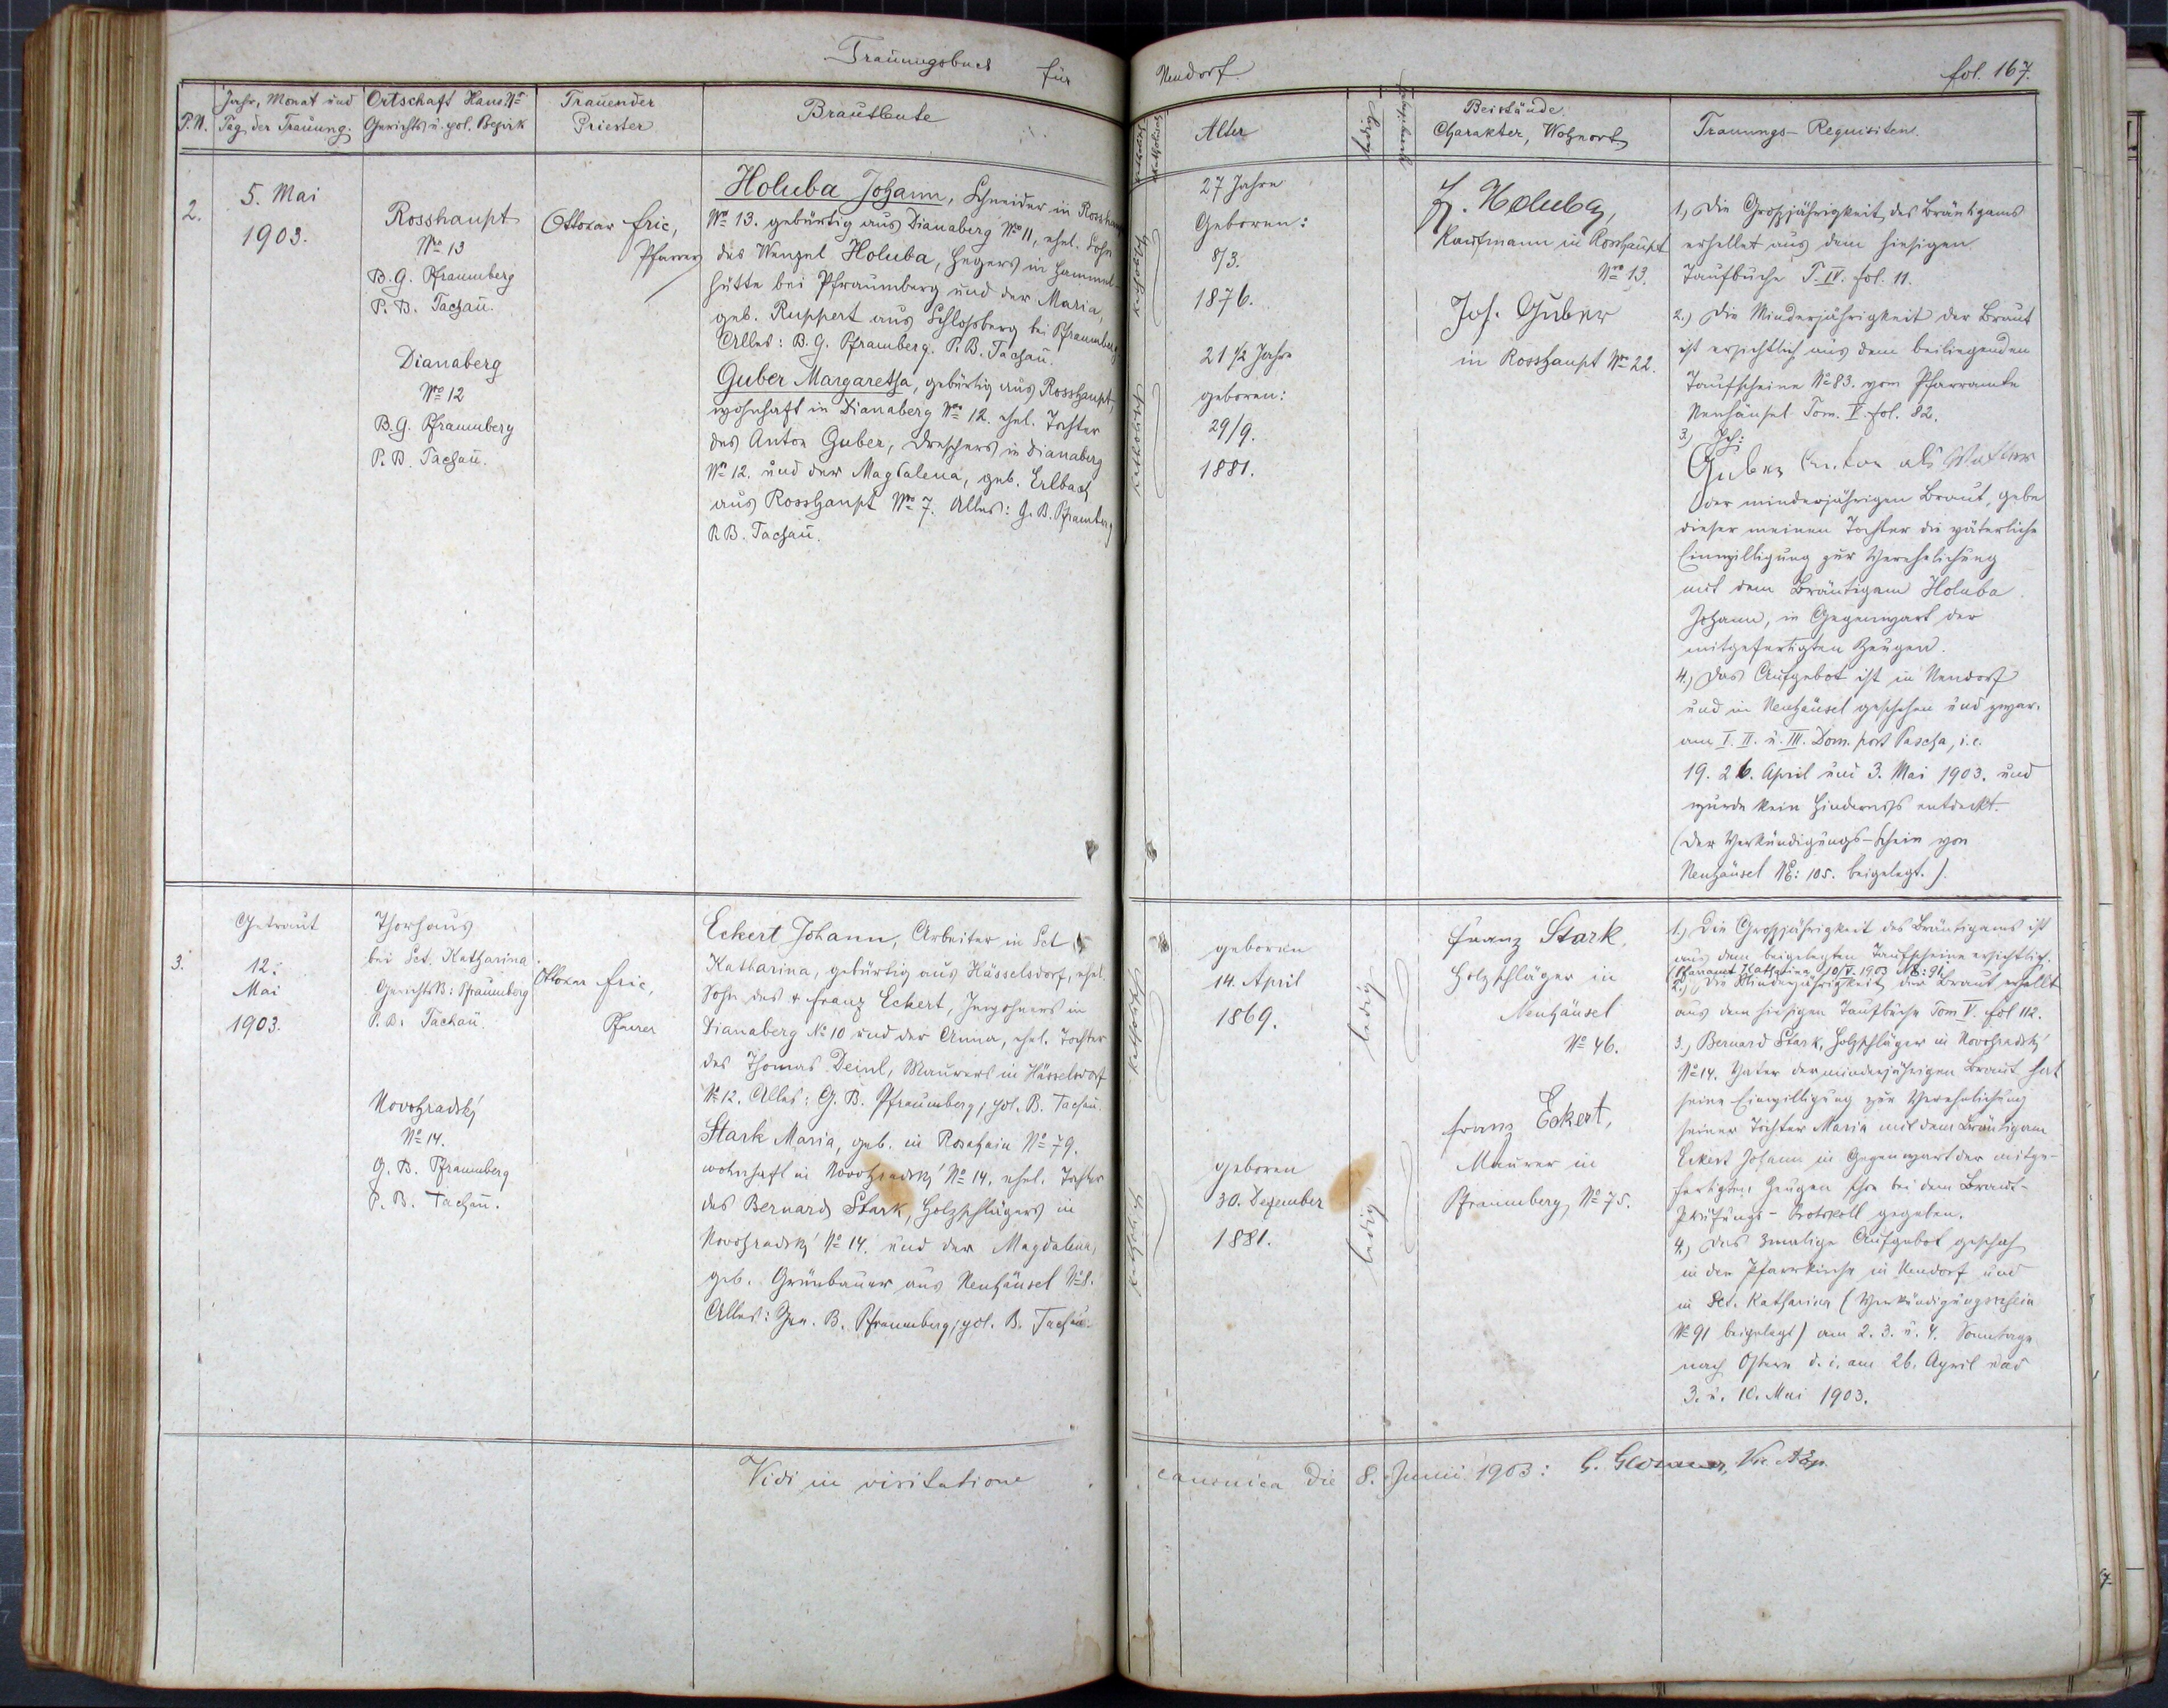 Trauungsbuch für Neudorf. fol. 167.
P.N.
Jahr, Monat und
Tag der Trauung.
Ortschaft Haus No
Gerichts u. pol. Bezirk
Trauender
Priester
Brautleute
katholisch
Alter
ledig
Beistände.
Charakter, Wohnort
Trauungs-Requisiten.
2.
5. Mai
1903.
Rosshaupt
Nro 13
B.G. Pfraumberg
P.B. Tachau.
Dianaberg
Nro 12
B.G. Pfraumberg
P.B. Tachau.
Ottokar Fric,
Pfarrer
Holuba Johann, Schneider in Rosshaupt
No 13. gebürtig aus Dianaberg No 11, ehel. Sohn
des Wenzel Holuba, Hegers in Hammel-
hütte bei Pfraumberg und der Maria,
geb. Ruppert aus Schlossberg bei Pfraumberg
Alles: B.G. Pfraumberg. P.B. Tachau.
Guber Margaretha, gebürtig aus Rosshaupt,
wohnhaft in Dianaberg Nro 12. ehel. Tochter
des Anton Guber, Dreschers in Dianaberg
No 12. und der Magdalena, geb. Erlbach
aus Rosshaupt Nro 7. Alles: G.B. Pfraumberg
P.B. Tachau.
katholisch
katholisch
27 Jahre
Geboren:
8/3.
1876.
21 1/2 Jahre
geboren:
29/9.
1881.
Holuba,
Kaufmann in Rosshaupt
Nro 13.
Jos. Guber
in Rosshaupt Nro 22.
1., Die Grossjährigkeit des Bräutigams
erhellet aus dem hiesigen
Taufbuche T. IV. fol. 11.
2.) Die Minderjährigkeit der Braut
ist ersichtlich aus dem beiliegenden
Taufscheine No 83. vom Pfarramte
Neuhäusel Tom. V. fol. 82.
3.) Ich:
Guber Anton als Vather
der minderjährigen Braut, gebe
dieser meinen Tochter die väterliche
Einwilligung zur Verehelichung
mit dem Bräutigam Holuba
Johann, in Gegenwart der
mitgefertigten Zeugen.
4.) Das Aufgebot ist in Neudorf
und in Neuhäusel geschehen und zwar
am I. II. u. III. Dom. post Pascha, i.e.
19. 26. April und 3. Mai 1903. und
wurde kein Hinderniss entdeckt.
(Der Verkündigungs-Schein von
Neuhäusel NE: 105. beigelegt.)
3.
Getraut
12.
Mai
1903.
Thorhaus
bei Sct. Katharina
GerichtsB: Pfraumberg
P.B. Tachau.
Novohradsky
No 14.
G.B. Pfraumberg
P.B. Tachau.
Ottokar Fric,
Pfarrer
Eckert Johann, Arbeiter in Sct
Katharina, gebürtig aus Hässelsdorf, ehel.
Sohn des + Franz Eckert, Inwohners in
Dianaberg No 10 und der Anna, ehel. Tochter
des Thomas Deinl, Maurers in Hässelsdorf
No 12. Alles: G.B. Pfraumberg, pol. B. Tachau.
Stark Maria, geb. in Rosshain No 79.
wohnhaft in Novohradsky No 14, ehel. Tochter
des Bernard Stark, Holzschlägers in
Novohradsky No 14. und der Magdalena,
geb. Grünbauer aus Neuhäusel No 8.
Alles: Ger. B. Pfraumberg, pol. B. Tachau.
katholisch
katholisch
geboren
14. April
1869.
geboren
30. Dezember
1881.
ledig
ledig
Franz Stark,
Holzschläger in
Neuhäusel
No 46.
Franz Eckert,
Maurer in
Pfraumberg No 75.
1.) Die Grossjährigkeit des Bräutigams ist
aus dem beigelegten Taufscheine ersichtlich.
(Pfarramt Katharina 10/V. 1903 NE: 91.
2.) Die Minderjährigkeit der Braut erhellt
aus dem hiesigen Taufbuche Tom V. fol 112.
3.) Bernard Stark, Holzschläger in Novohradsky
No 14. Vater der minderjährigen Braut hat
seine Einwilligung zur Verehelichung
seiner Tochter Maria mit dem Bräutigam
Eckert Johann in Gegenwart der mitge-
fertigten Zeugen schon bei dem Braut-
prüfungs-Protokoll gegeben.
4.) Das 3malige Aufgebot geschah
in der Pfarrkirche in Neudorf und
in Sct. Katharina (Verkündigungsschein
No 91 beigelegt) am 2. 3. u. 4. Sonntage
nach Ostern d. i. am 26. April und
3. u. 10. Mai 1903.
Vidi in visitatione canonica die 8. Junii 1903: